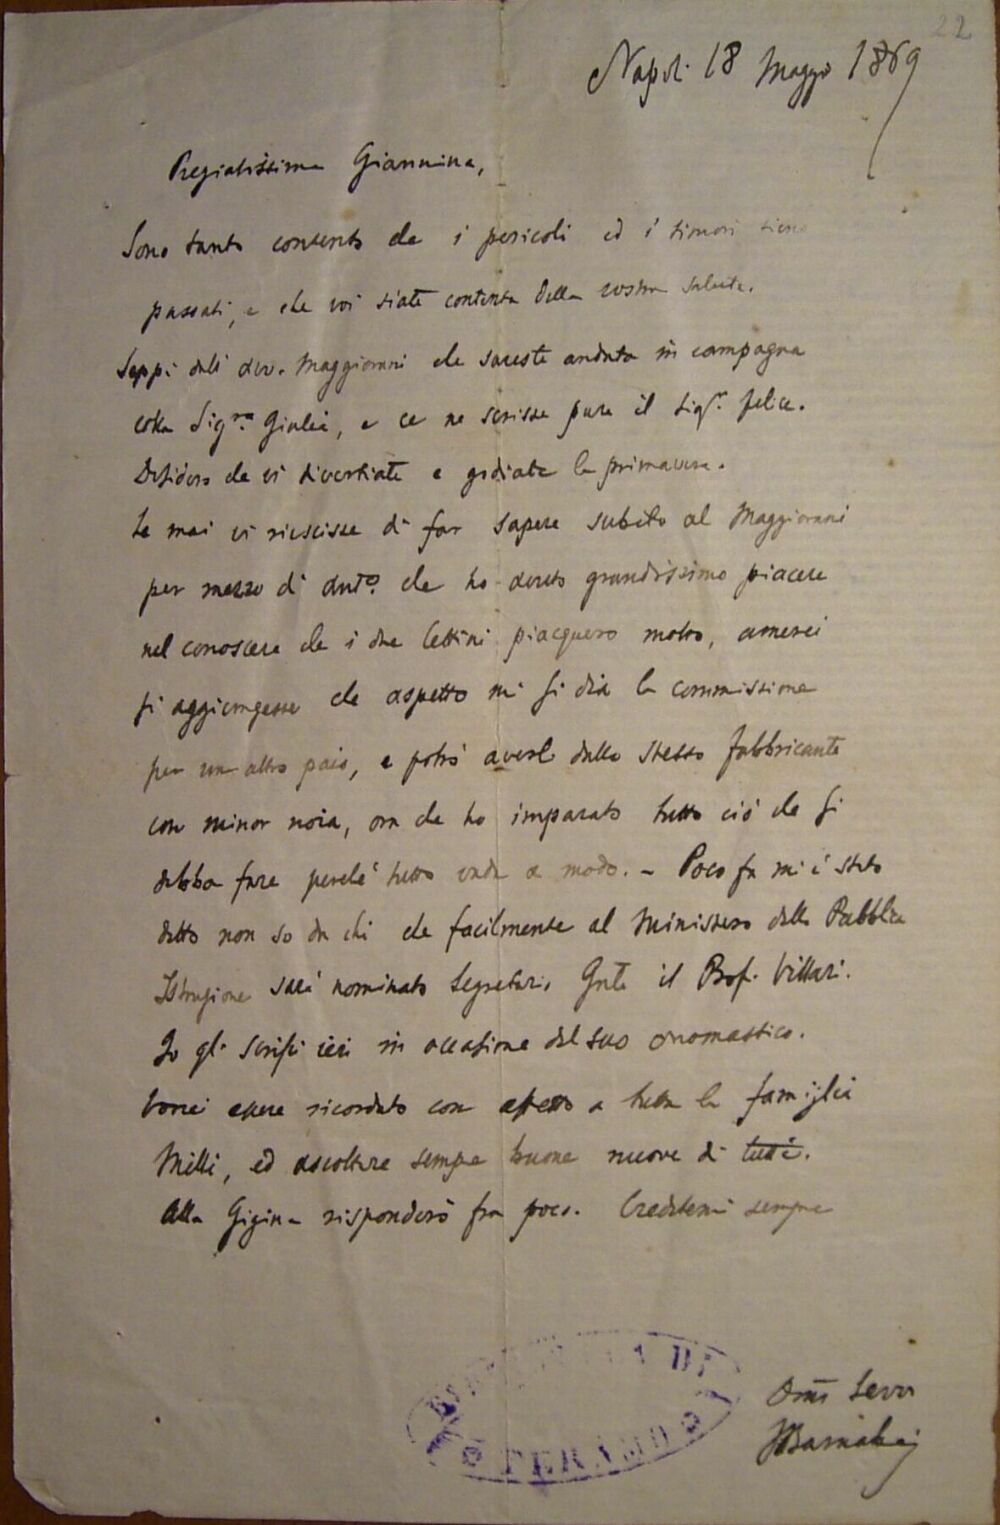 22
Napoli 18 Maggio 1869
Pregiatissima Giannina,
Sono tanto contento che i pericoli ed i timori sieno
passati, e che voi siate contenta della vostra salute.
Seppi dall' avv. Maggiorani che sareste andata in campagna
colla Sigra. Giulia, e ce ne scrisse pure il Sigr. Felice.
Desidero che vi divertiate e godiate la primavera.
Se mai vi riuscisse di far sapere subito al Maggiorani
per mezzo di Anto. che ho avuto grandissimo piacere
nel conoscere che i due lettini piacquero molto, amerei
si aggiungesse che aspetto mi si dia la commissione
per un altro paio, e potrò averli dallo stesso fabbricante
con minor noia, ora che ho imparato tutto ciò che si
debba fare perchè tutto vada a modo. - Poco fa mi è stato
detto non so da chi che facilmente al Ministero della Pubblica
Istruzione sarà nominato Segretario Gnle il Prof. Villari.
Io gli scrissi ieri in occasione del suo onomastico.
Vorrei essere ricordato con affetto a tutta la famiglia
Milli, ed ascoltare sempre buone nuove di tutti.
Alla Gigina risponderò fra poco. Credetemi sempre
Servo
FBarnabei
BIBLIOTECA DI
TERAMO